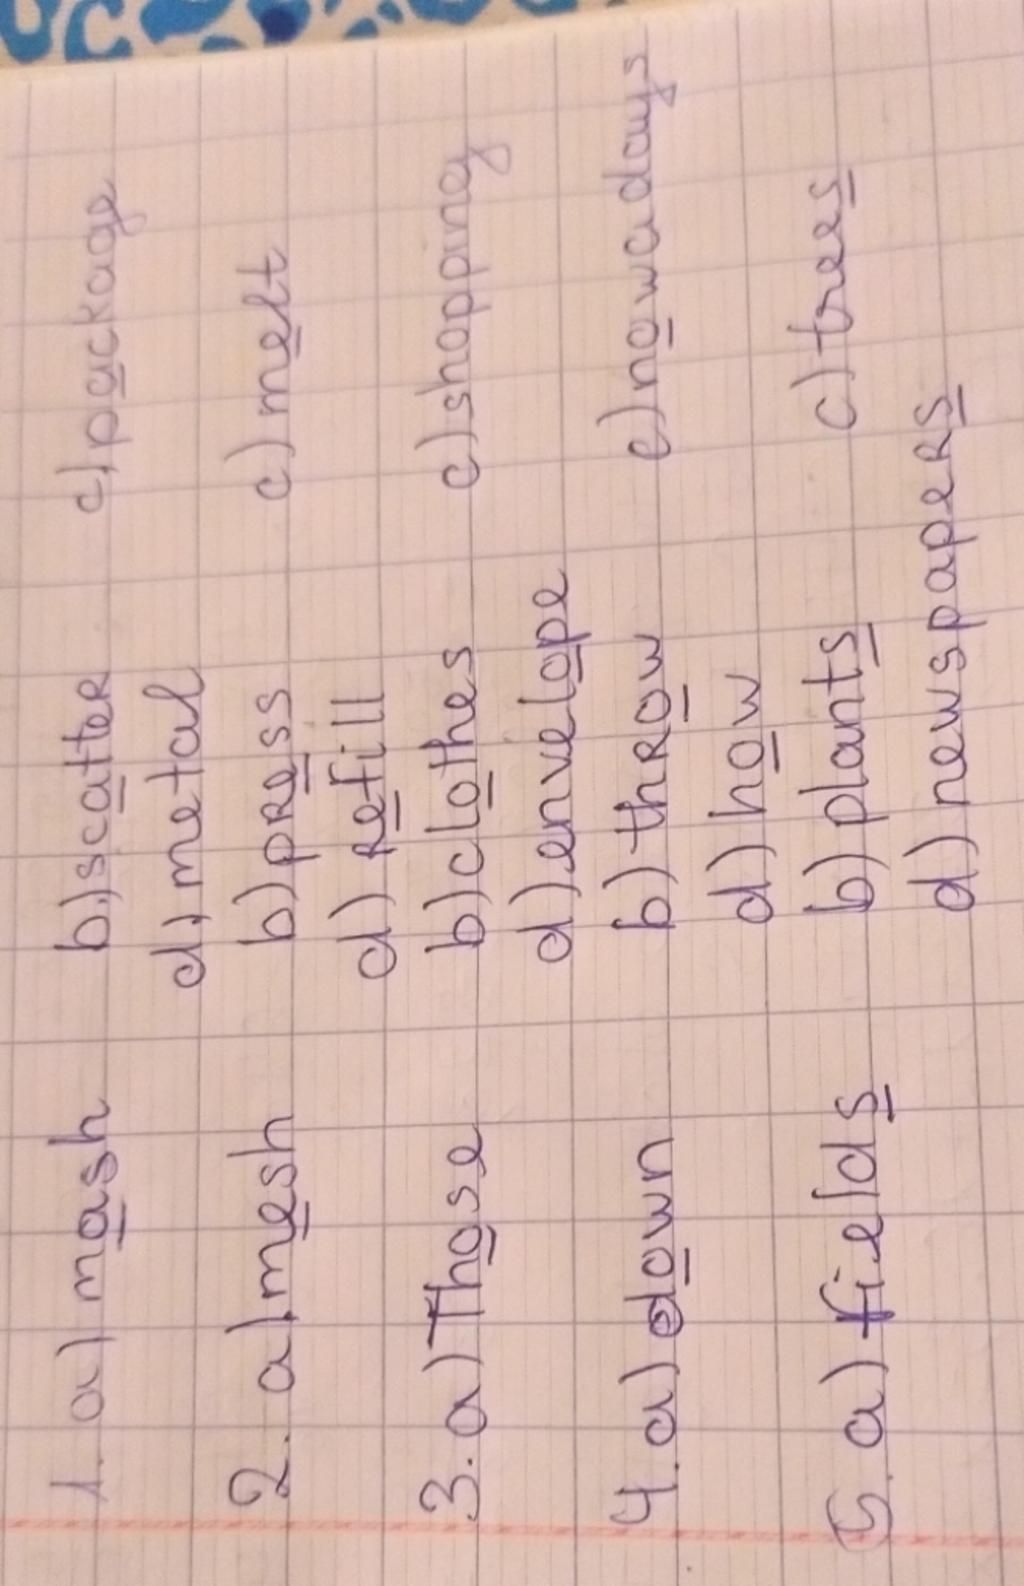 1. a) mash b) scatter c) package
d) metal
2. a) mesh b) press c) melt
d) refill
3. a) Those b) clothes c) shopping
d) envelope
4. a) down b) throw e) nowadays
d) how
5. a) fields b) plants c) trees
d) newspapers